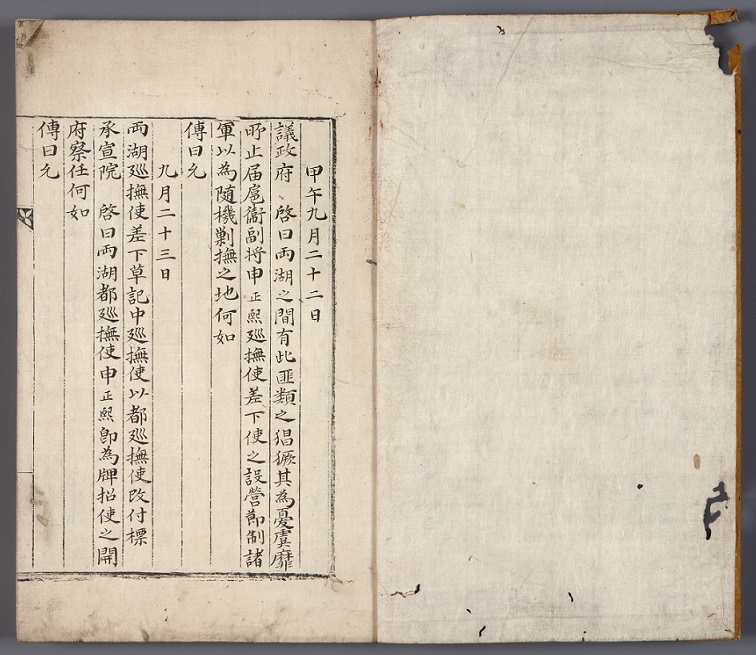 甲午九月二十二日
議政府 啓曰兩湖之間有此匪類之猖獗其為憂虞靡
所止届扈衛副將申正熙廵撫使差下使之設營節制諸
軍以為隨機剿撫之地何如
傳曰允
九月二十三日
兩湖廵撫使差下草記中廵撫使以都廵撫使改付標
承宣院 啓曰兩湖都廵撫使申正熙卽為牌招使之開
府察任何如
傳曰允